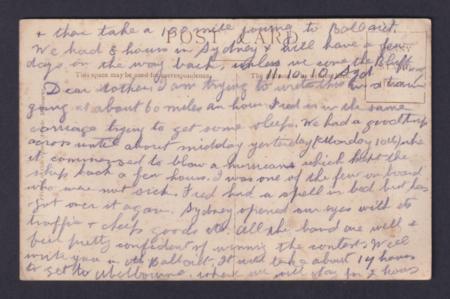 & then take a 100 mile journey to Ballarat.
We had 8 hours in Sydney & will have a few
days on the way back unless we come the Bluff
POST CARD
This space may be used for correspondence.
11.10.10. Syd
Dear Mother, I am trying to write this in a train
going at about 60 miles an hour. Fred is in the same
carriage trying to get some sleep. We had a good trip
across until about midday yesterday (Monday 10th) when
it commenced to blow a hurricane which kept the
ship back a few hours. I was one of the few on board
who were not sick. Fred had a spell in bed but has
got over it again. Sydney opened our eyes with its
traffic & cheap goods etc. All the band are well &
feel pretty confident of winning the contest. Will
write you in Ballarat. It will take about 14 hours
to get to Melbourne, where we will stay for 2 hours